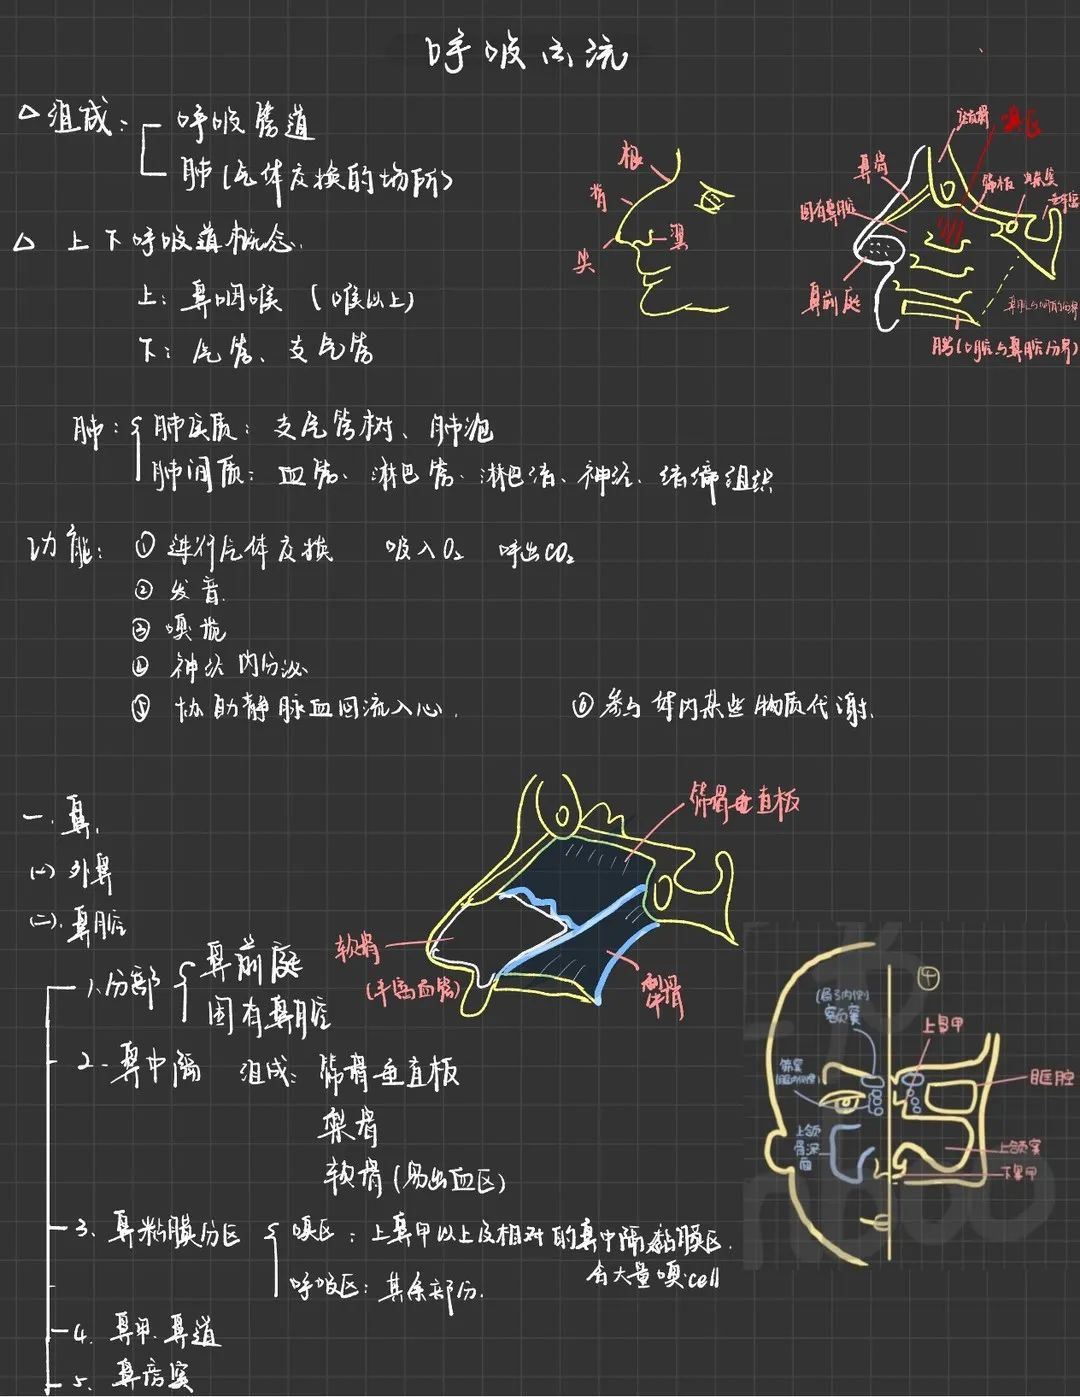 呼吸系统
△组成：呼吸管道
肺（气体交换的场所）
△ 上下呼吸道概念
上：鼻咽喉（喉以上）
下：气管、支气管
根
背
尖
翼
嗅区
鼻骨
筛板
固有鼻腔
鼻前庭
腭（口腔与鼻腔分界）
肺：肺实质：支气管树、肺泡
肺间质：血管、淋巴管、淋巴结、神经、结缔组织
功能：① 进行气体交换 吸入O₂ 呼出CO₂
② 发音
③ 嗅觉
④ 神经内分泌
⑤ 协助静脉血回流入心. ⑥ 参与体内某些物质代谢.
一.鼻.
(一) 外鼻
(二).鼻腔
筛骨垂直板
软骨
犁骨
1.分部 鼻前庭
固有鼻腔
2.鼻中隔 组成：筛骨垂直板
犁骨
软骨（易出血区）
3.鼻粘膜分区 嗅区：上鼻甲以上及相对的鼻中隔黏膜区.
含大量嗅cell
呼吸区：其余部分.
4.鼻甲.鼻道
5.鼻旁窦
额窦
筛窦
上颌
骨深
面
上鼻甲
眶腔
上颌窦
下鼻甲